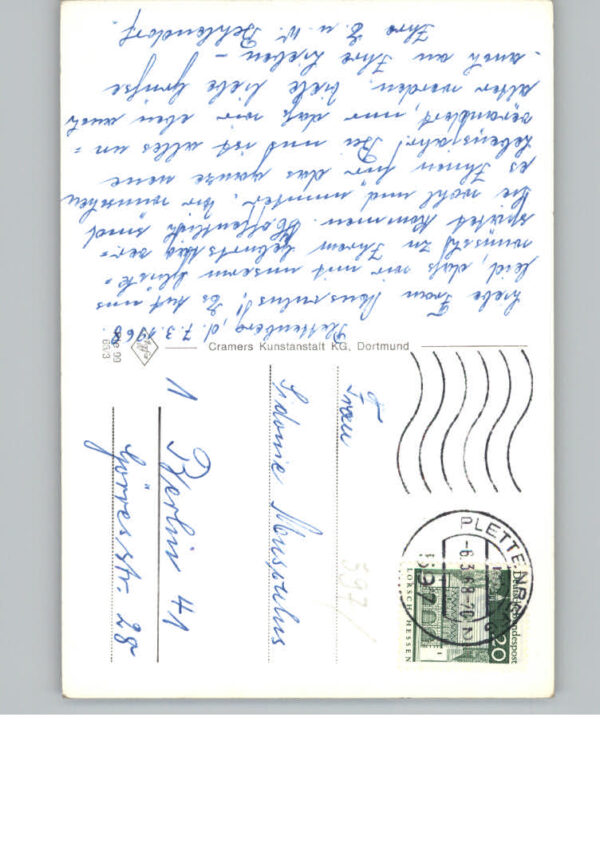 Plettenberg, d. 7.3.1968
Liebe Frau Musculus! Es tut uns
leid, daß wir mit unserem Glück-
wunsch zu Ihrem Geburtstag ver-
spätet kommen. Hoffentlich sind
Sie wohl und munter. Wir wünschen
es Ihnen für das ganze neue
Lebensjahr! Bei uns ist alles un-
verändert, nur daß wir eben auch
älter werden. Viele liebe Grüße
- auch an Ihre Lieben -
Ihre E. u. W.
Cramers Kunstanstalt KG, Dortmund
Frau
Sidonie Musculus
1 Berlin 41
Görresstr. 28
397/
PLETTENBERG
-6.3.68-20
597
Deutsche Bundespost
20
LORSCH/HESSEN